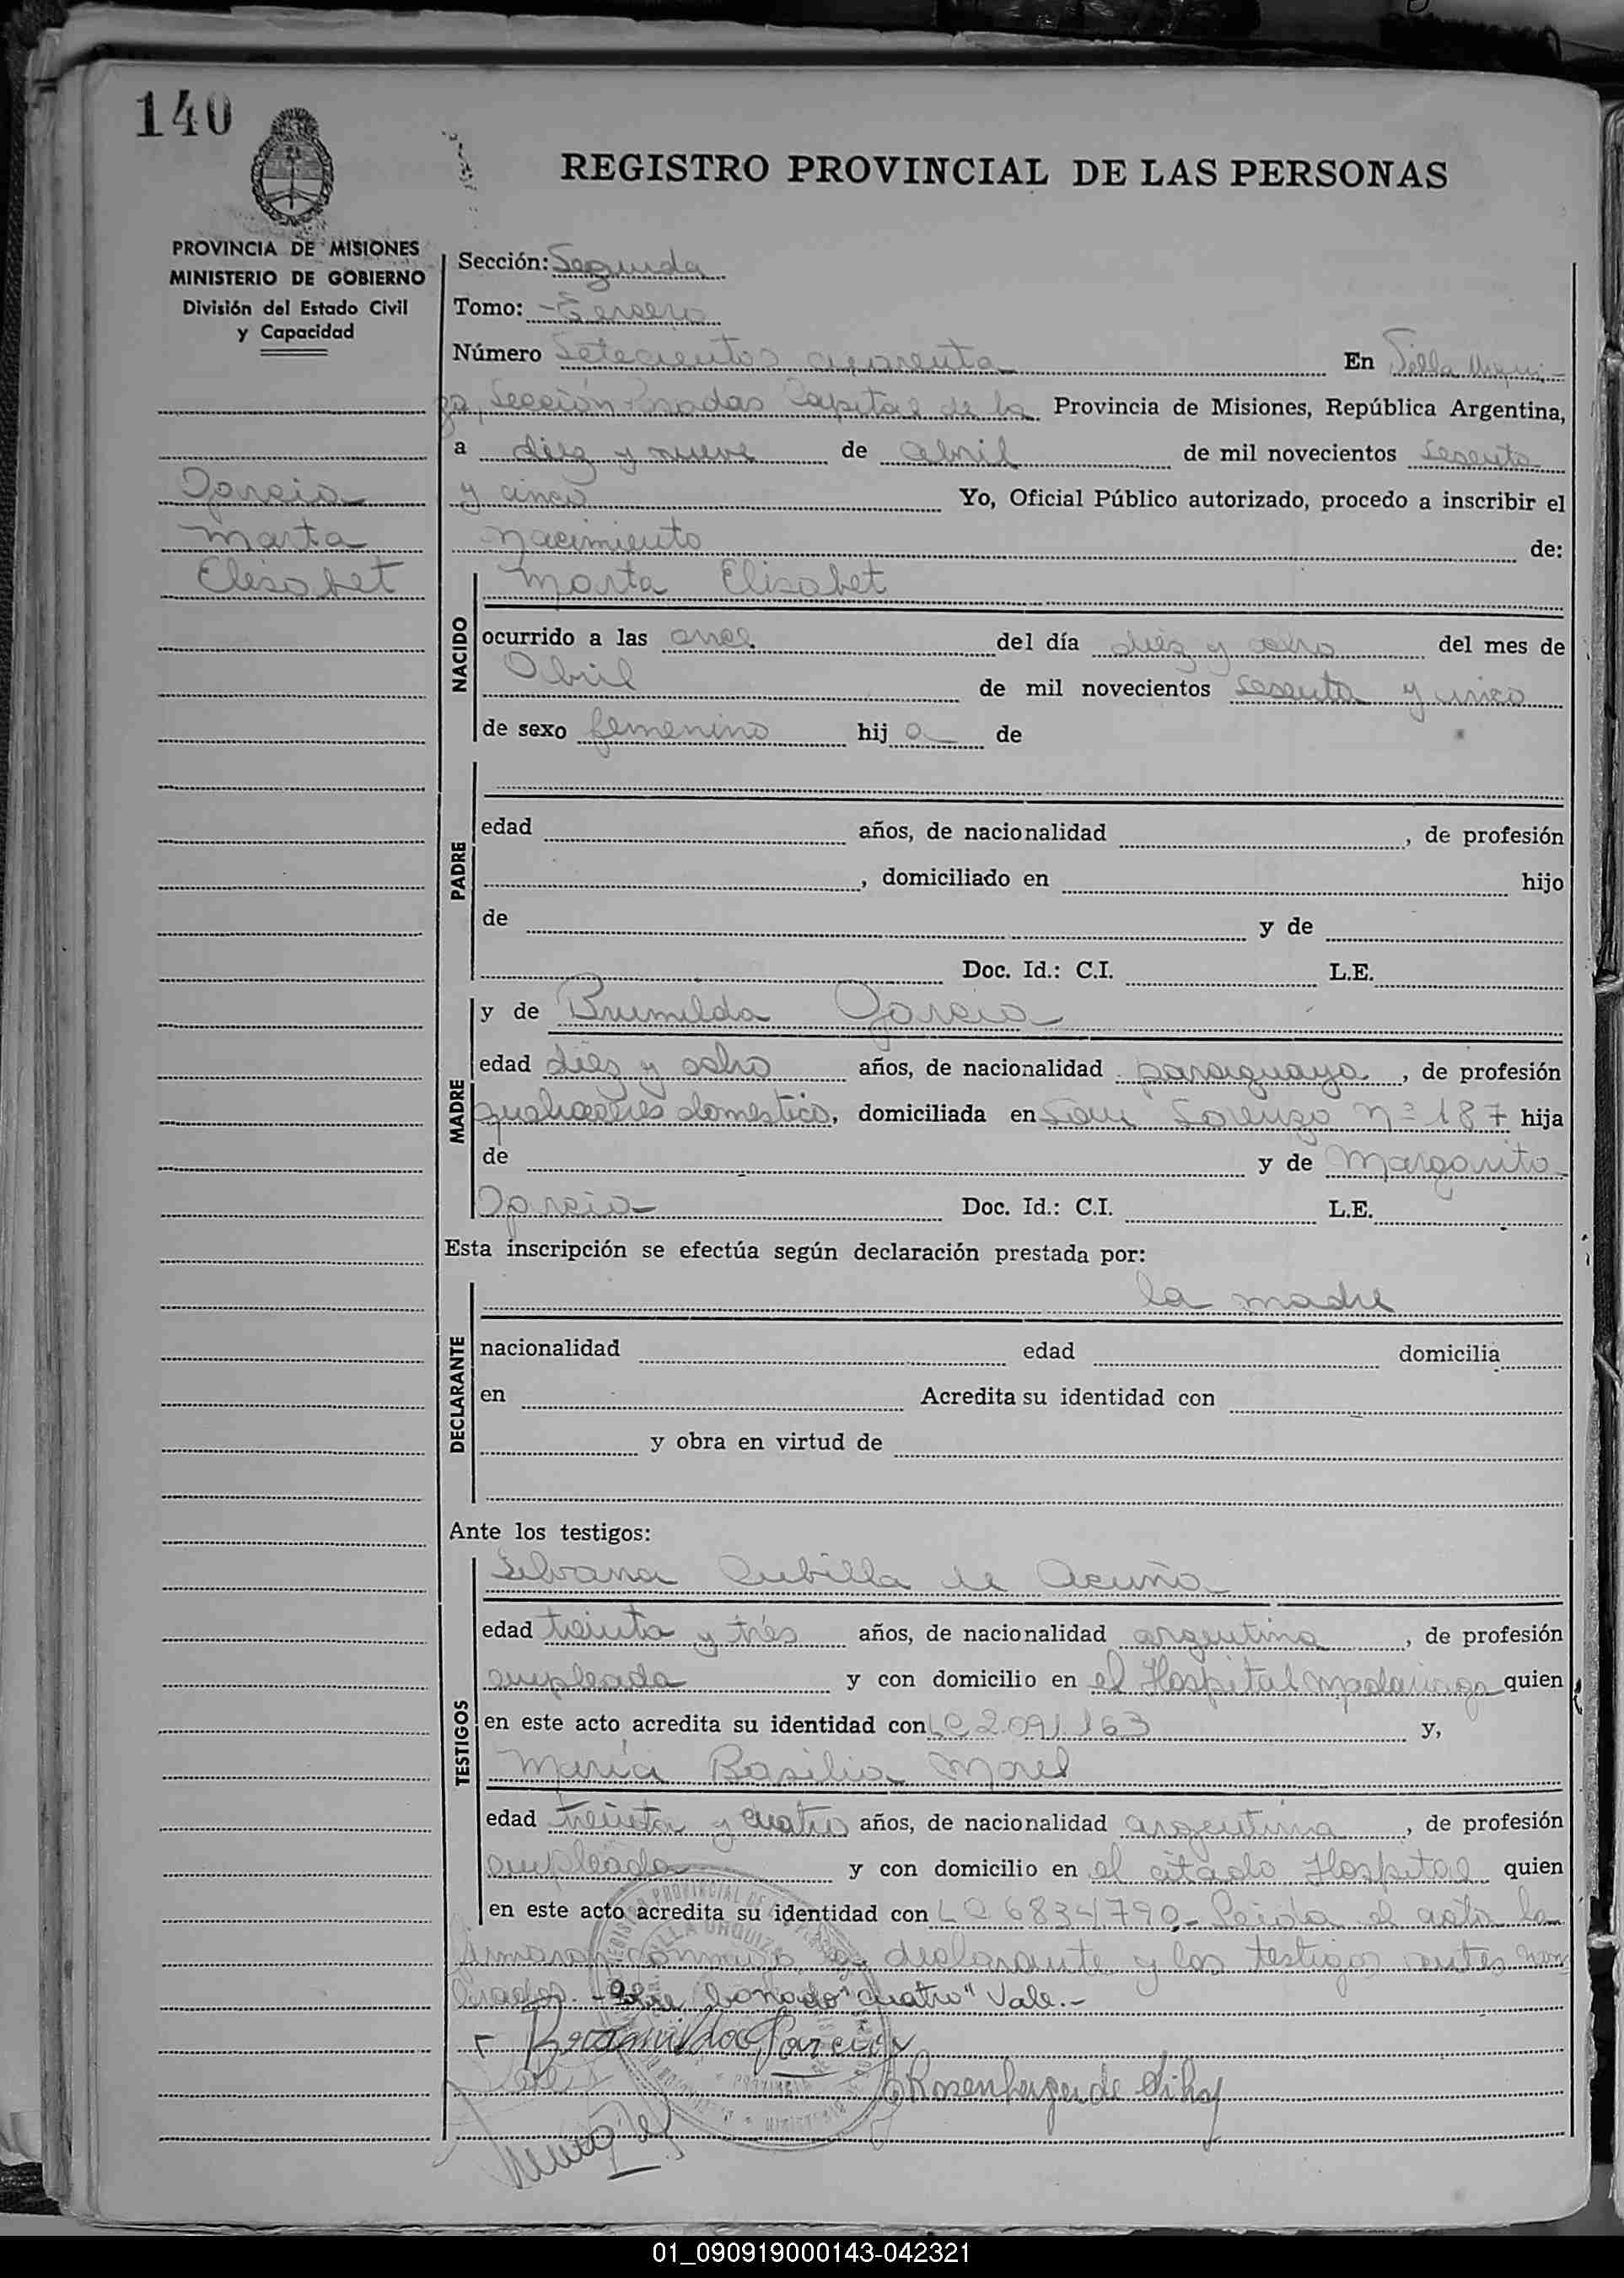 140
REGISTRO PROVINCIAL DE LAS PERSONAS
PROVINCIA DE MISIONES
MINISTERIO DE GOBIERNO
División del Estado Civil
y Capacidad
Sección: Segunda
Tomo: Tercero
Número Setecientos cuarenta En Villa Urqui-
za, Sección Posadas Capital de la Provincia de Misiones, República Argentina,
a diez y nueve de abril de mil novecientos sesenta
y cinco Yo, Oficial Público autorizado, procedo a inscribir el
nacimiento de:
Garcia
Marta
Elisabet
NACIDO
Marta Elisabet
ocurrido a las once del día diez y ocho del mes de
Abril de mil novecientos sesenta y cinco
de sexo femenino hij a de
PADRE
edad años, de nacionalidad , de profesión
, domiciliado en hijo
de y de
Doc. Id.: C.I. L.E.
MADRE
y de Brumilda Garcia
edad diez y ocho años, de nacionalidad paraguaya, de profesión
quehaceres domestico, domiciliada en San Lorenzo Nº 187 hija
de y de Margarita
Garcia Doc. Id.: C.I. L.E.
Esta inscripción se efectúa según declaración prestada por:
DECLARANTE
la madre
nacionalidad edad domicilia
en Acredita su identidad con
y obra en virtud de
Ante los testigos:
TESTIGOS
Silvana Cubilla de Acuña
edad treinta y trés años, de nacionalidad argentina, de profesión
empleada y con domicilio en el Hospital Madariaga quien
en este acto acredita su identidad con LC 2.091.163 y,
María Basilia Morel
edad treinta y cuatro años, de nacionalidad argentina, de profesión
empleada y con domicilio en el citado Hospital quien
en este acto acredita su identidad con LC 6834790.- Leida el acta la
firmaron conmigo la declarante y los testigos antes nom
brados.- Sobre borrado "cuatro" Vale.-
Garcia
Rosenberger de
01_090919000143-042321